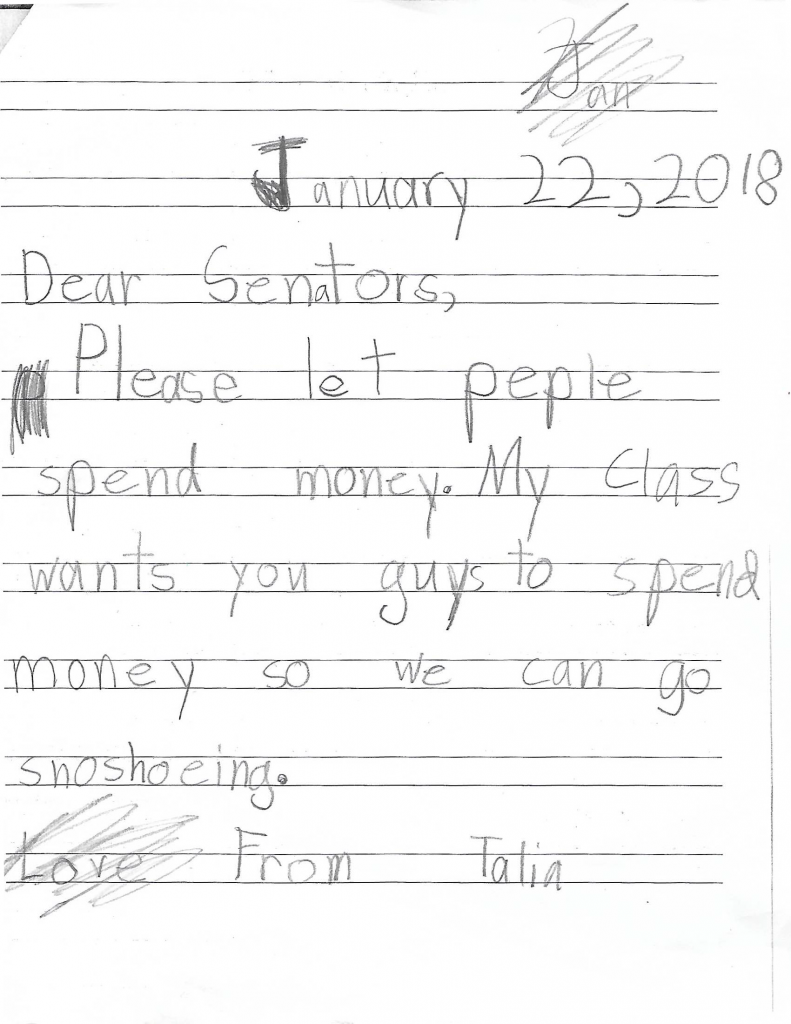 Jan
January 22, 2018
Dear Senators,
Please let peple
spend money. My Class
wants you guys to spend
money so we can go
snoshoeing.
Love From Talia